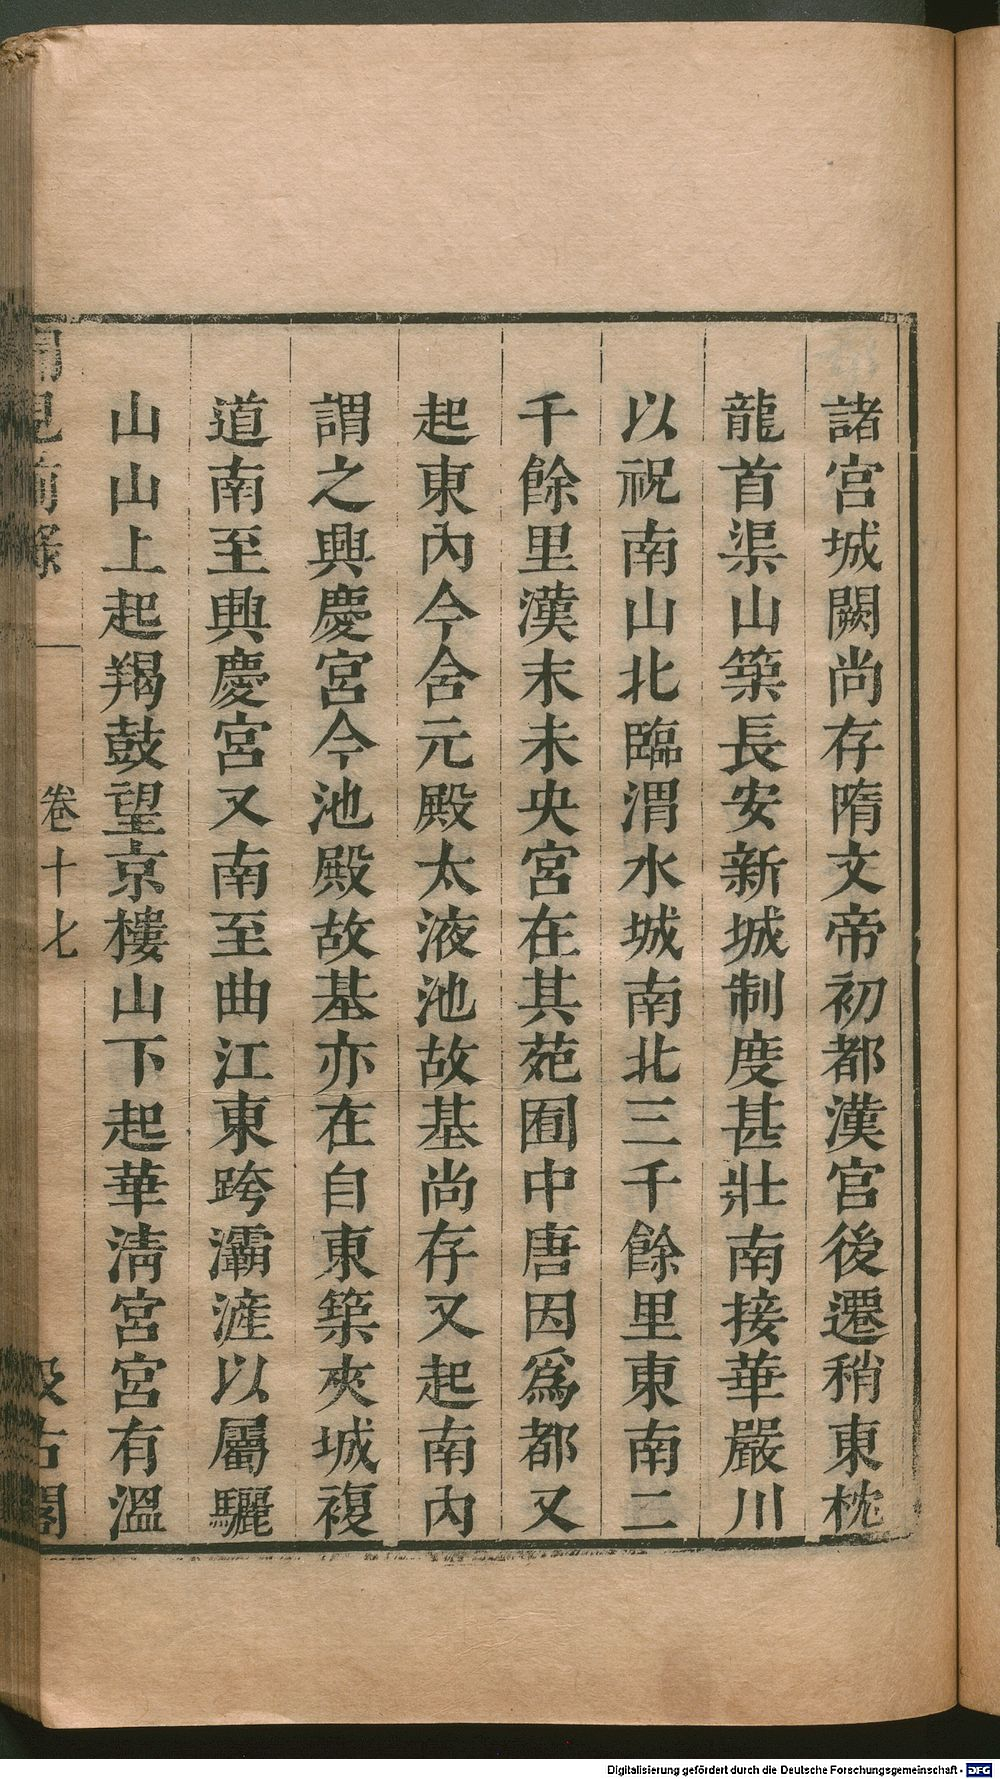 諸宮城闕尚存隋文帝初都漢宮後遷稍東枕
龍首渠山築長安新城制度甚壯南接華嚴川
以祝南山北臨渭水城南北三千餘里東南二
千餘里漢末未央宮在其苑囿中唐因為都又
起東內今含元殿太液池故基尚存又起南內
謂之興慶宮今池殿故基亦在自東築夾城複
道南至興慶宮又南至曲江東跨灞滻以屬驪
山山上起羯鼓望京樓山下起華清宮宮有溫
聞見前錄
卷十七
汲古閣
Digitalisierung gefördert durch die Deutsche Forschungsgemeinschaft - DFG